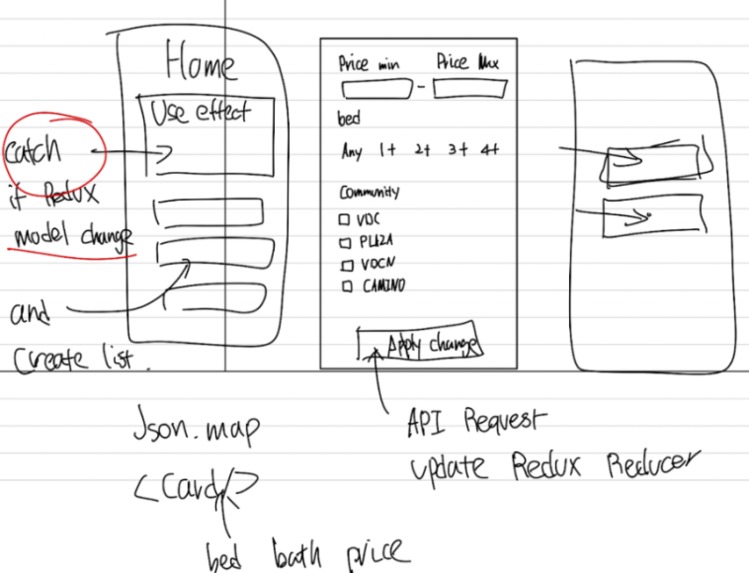 Home
Use effect
catch
if Redux
model change
and
Create list.
Price min Price Max
-
bed
Any 1+ 2+ 3+ 4+
Community
VDC
PLAZA
VOCN
CAMINO
Apply change
API Request
update Redux Reducer
Json.map
<Card/>
bed bath price